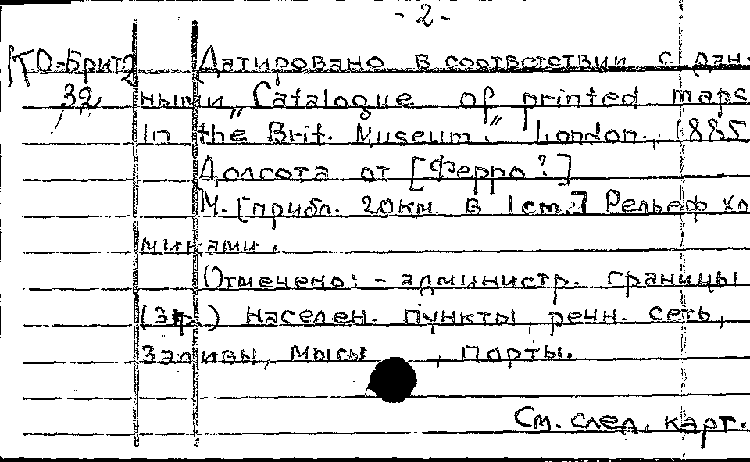 - 2 -
КО-Брит Датировано в соответствии с дан-
32 ными „Catalogue of printed maps
in the Brit. Museum." London, 1885
Долгота от [Ферро?]
М. [прибл. 20км в 1 cm.] Рельеф хол
миками.
Отмечено: - администр. границы
(Зр.) населен. пункты, речн. сеть,
заливы, мысы, порты.
См. след. карт.